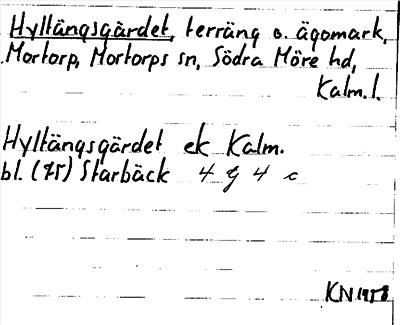 Hyltängsgärdet, terräng o. ägomark,
Mortorp, Mortorps sn, Södra Möre hd,
Kalm. l.
Hyltängsgärdet ek Kalm.
bl. (75) Starbäck 4 G 4 c
KN 1958